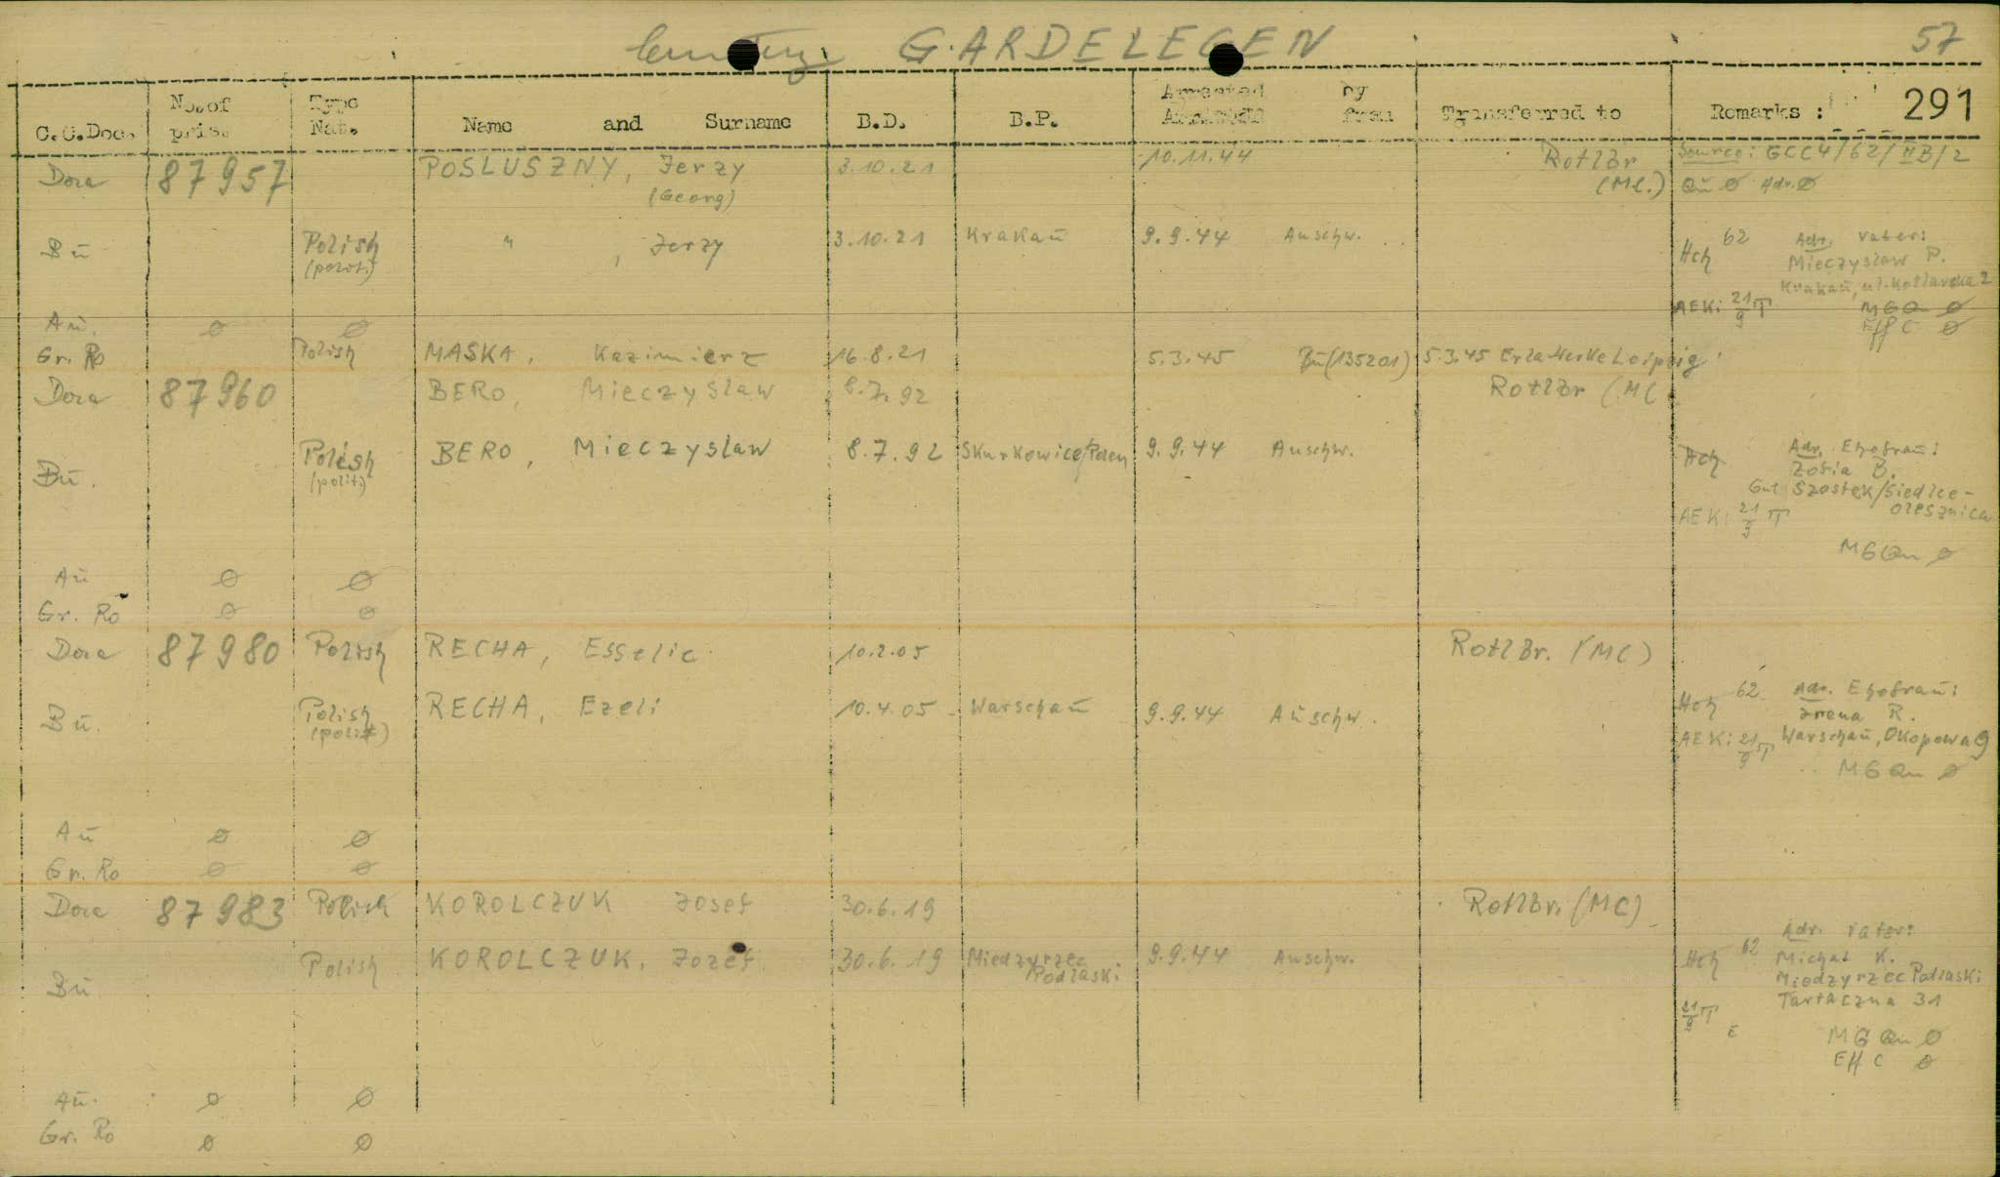 GARDELEGEN 57
C.C.Doc. No. of pris. Type Nat. Name and Surname B.D. B.P. Arrested by from Transferred to Remarks : 291
Dora 87957 POSLUSZNY, Jerzy 3.10.21 10.11.44 Rotlbr Source: GCC4/62/IIB/2
(Georg) (MC.) Qu Ø Adr. Ø
Bu Polish " , Jerzy 3.10.21 Krakau 9.9.44 Auschw. Hch 62 Adr. Vater:
(polit.) Mieczyslaw P.
Krakau, ul. Kotlarska 2
AEK: 21/9 T MGQu Ø
Au. Ø Ø Eff C Ø
Gr. Ro Polish MASKA, Kazimierz 16.8.21 5.3.45 Bu (135201) 5.3.45 Erla Werke Leipzig
Dora 87960 BERO, Mieczyslaw 8.7.92 Rotlbr (MC
Bu. Polish BERO, Mieczyslaw 8.7.92 Skurkowice/Polen 9.9.44 Auschw. Hch Adr. Ehefrau:
(polit.) Zofia B.
Gut Szostek/Siedlce-
Olesznica
AEK: 21/9 T
MGQu Ø
Au Ø Ø
Gr. Ro Ø Ø
Dora 87980 Polish RECHA, Esselic 10.2.05 Rotlbr. (MC)
Bu. Polish RECHA, Ezeli 10.4.05 Warschau 9.9.44 Auschw. Hch 62 Adr. Ehefrau:
(polit.) Irena R.
AEK: 21/9 T Warschau, Okopowa 9
MGQu Ø
Au Ø Ø
Gr. Ro Ø Ø
Dora 87983 Polish KOROLCZUK Josef 30.6.19 Rotlbr. (MC)
Bu Polish KOROLCZUK, Jozef 30.6.19 Miedzyrzec Podlaski 9.9.44 Auschw. Hch 62 Adr. Vater:
Michal K.
Miedzyrzec Podlaski
Tartaczna 31
21/9 T
MGQu Ø
Eff C Ø
Au. Ø Ø
Gr. Ro Ø Ø